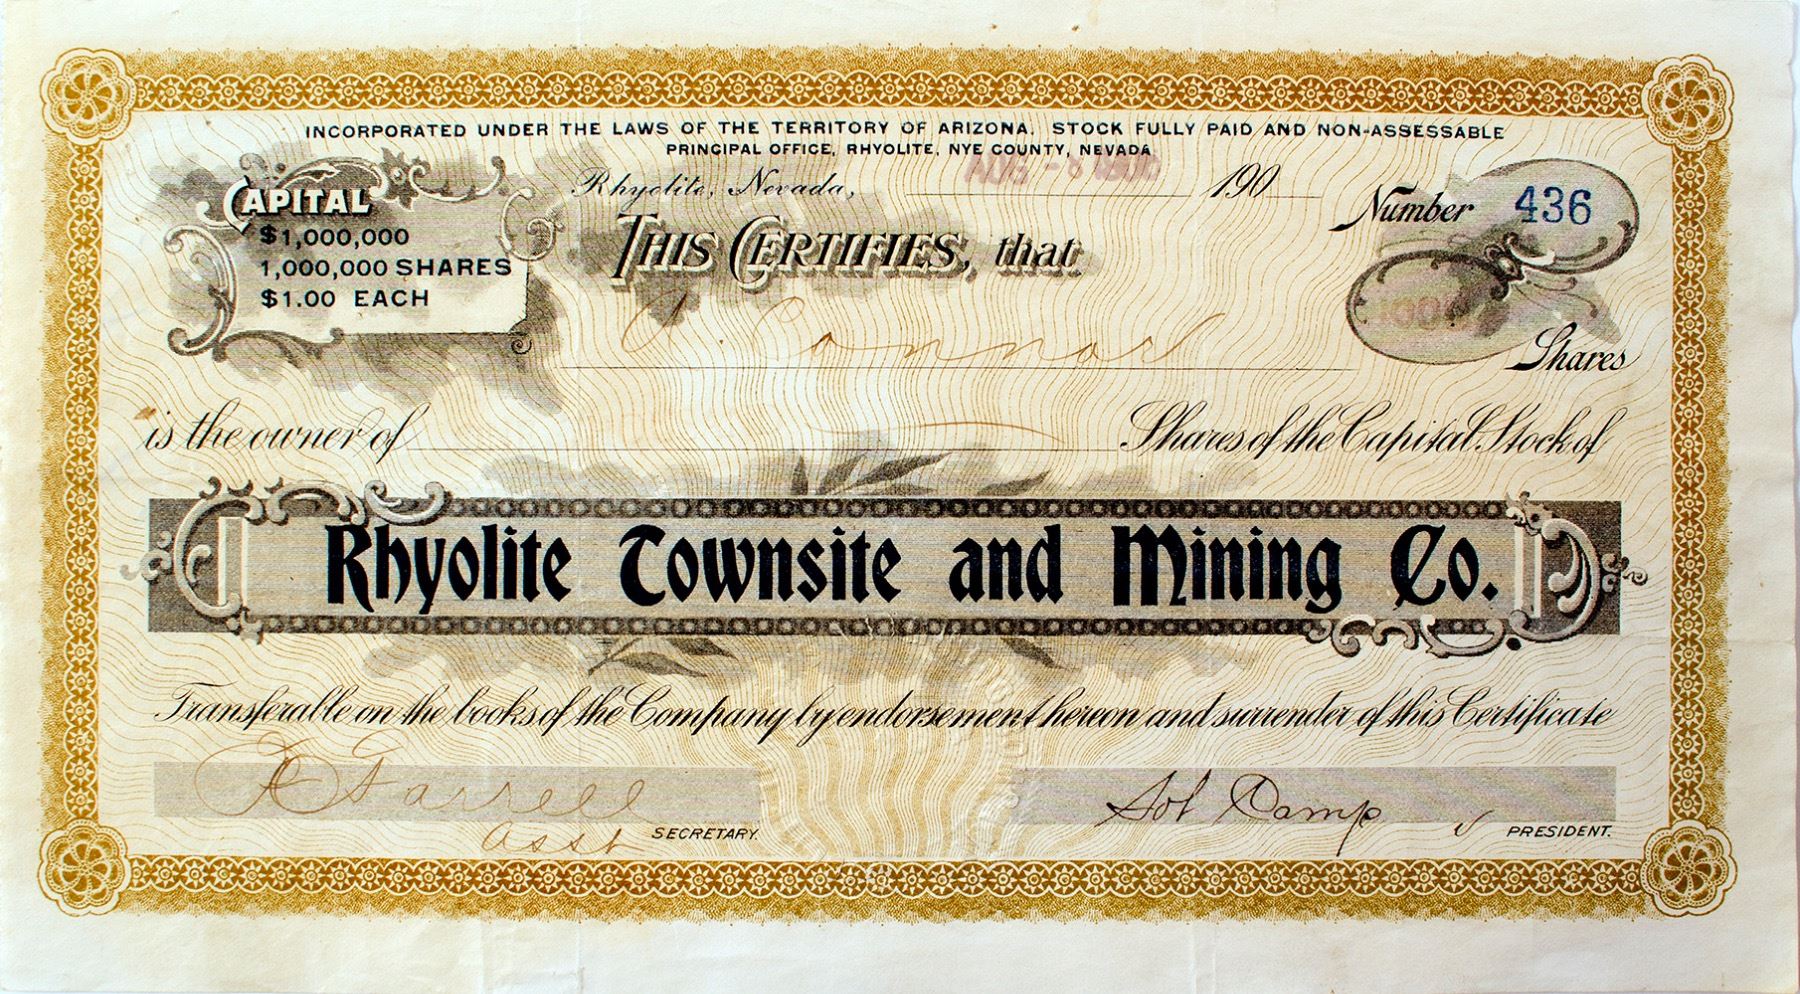 INCORPORATED UNDER THE LAWS OF THE TERRITORY OF ARIZONA. STOCK FULLY PAID AND NON-ASSESSABLE
PRINCIPAL OFFICE, RHYOLITE, NYE COUNTY, NEVADA
CAPITAL
$1,000,000
1,000,000 SHARES
$1.00 EACH
Rhyolite, Nevada, AUG -8 190
Number 436
THIS CERTIFIES, that
Connor
Shares
is the owner of Shares of the Capital Stock of
Rhyolite Townsite and Mining Co.
Transferable on the books of the Company by endorsement hereon and surrender of this Certificate
Farrell
Asst SECRETARY.
Sol Camp
V PRESIDENT.